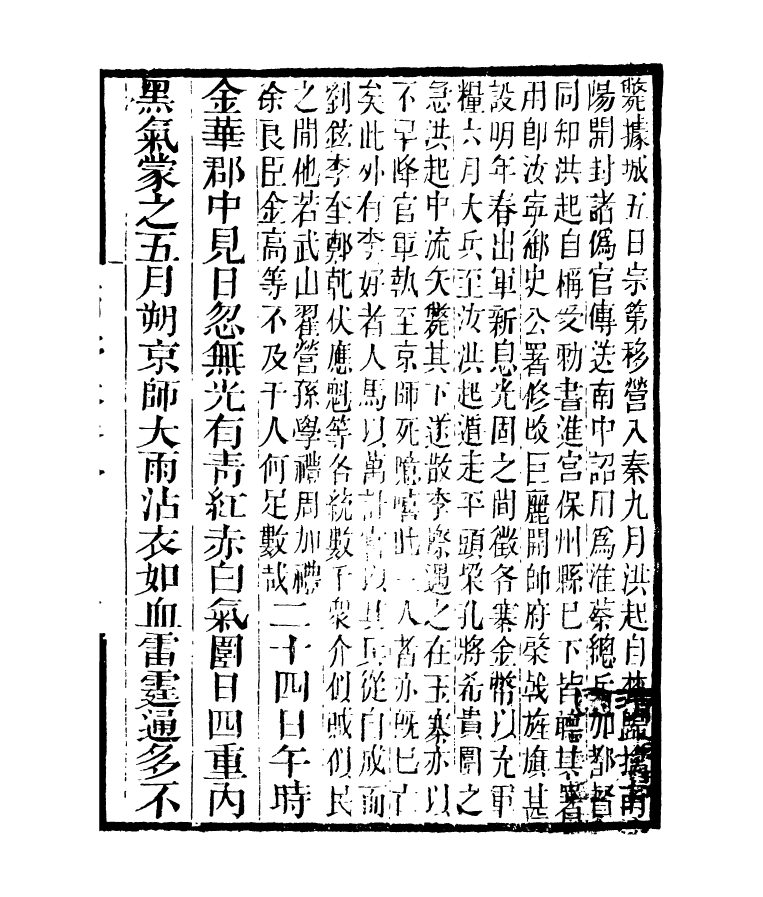 斃據城五日宗第移營入秦九月洪起自
陽開封諸僞官傳送南中詔用爲淮蔡總兵加都督
同知洪起自稱受勅書進宮保州縣已下皆聽其署
用卽汝寧御史公署修改巨麗開帥府棨戟旌旗甚
設明年春出軍新息光固之間徵各寨金幣以充軍
糧六月大兵至汝洪起遁走平頭垜孔將希貴圍之
急洪起中流矢斃其下送故李際遇之在玉寨亦以
不早降官軍執至京師死噫嘻此一人者亦旣已亡
矣此外有李好者人馬以萬計嘗以其兵從自成而
劉鉉李奎鄭乾伏應魁等各統數千衆介們賊們民
之閒他若武山翟營孫學禮周加禮
徐良臣金高等不及千人何足數哉二十四日午時
金華郡中見日忽無光有青紅赤白氣圍日四重內
黑氣蒙之五月朔京師大雨沾衣如血雷霆逼多不